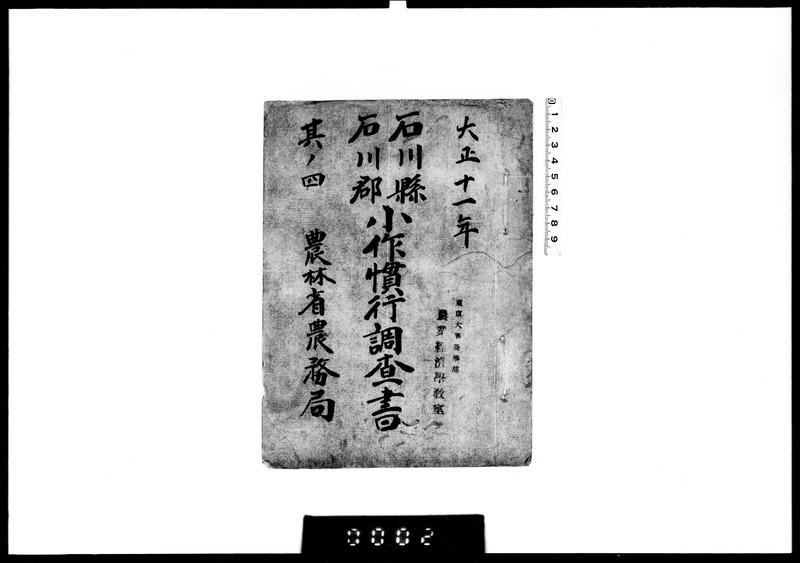 大正十一年
東京大學農學部
農業經濟學教室
石川縣
石川郡
小作慣行調査書
其ノ四
農林省農務局
0 1 2 3 4 5 6 7 8 9
0002